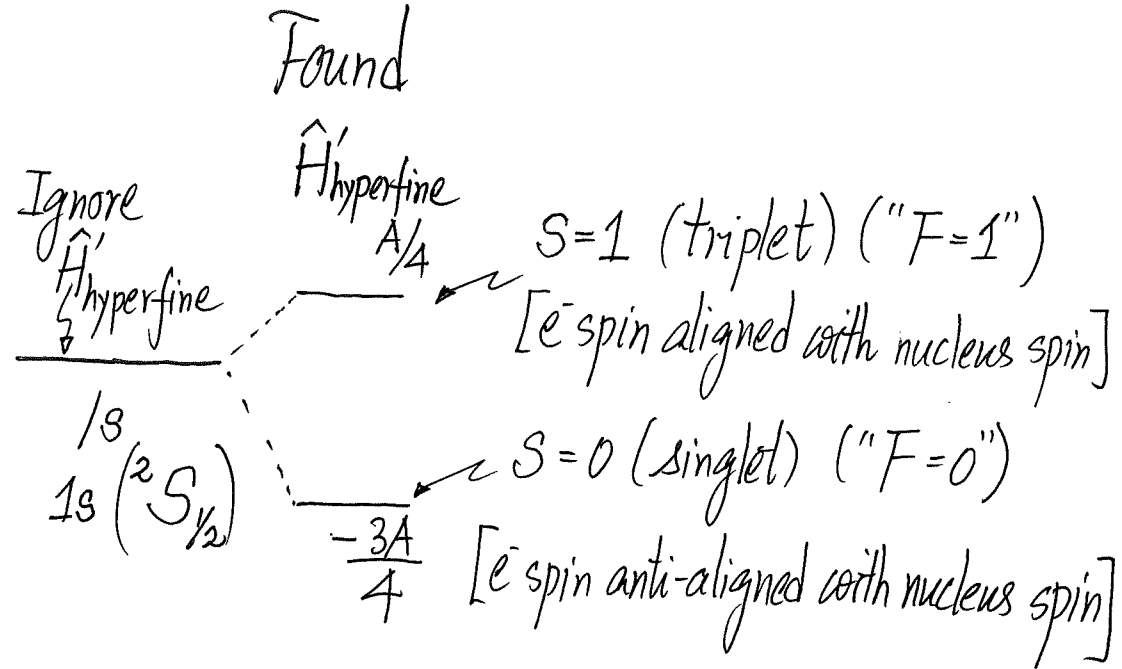 Found
Ĥ'hyperfine
Ignore
Ĥ'hyperfine
A/4
S=1 (triplet) ("F=1")
[e⁻ spin aligned with nucleus spin]
1s
1s (²S₁/₂)
S=0 (singlet) ("F=0")
-3A/4
[e⁻ spin anti-aligned with nucleus spin]